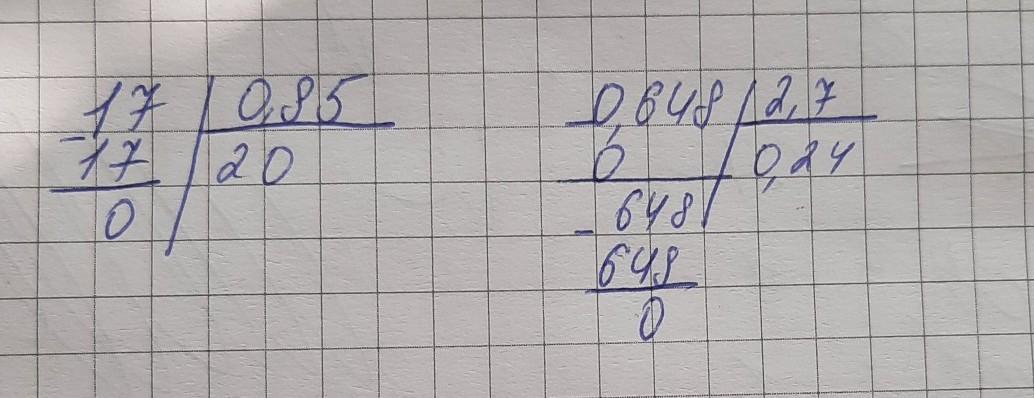 -17 | 0,85
17 | 20
0
0,648 | 2,7
0 | 0,24
-648
648
0